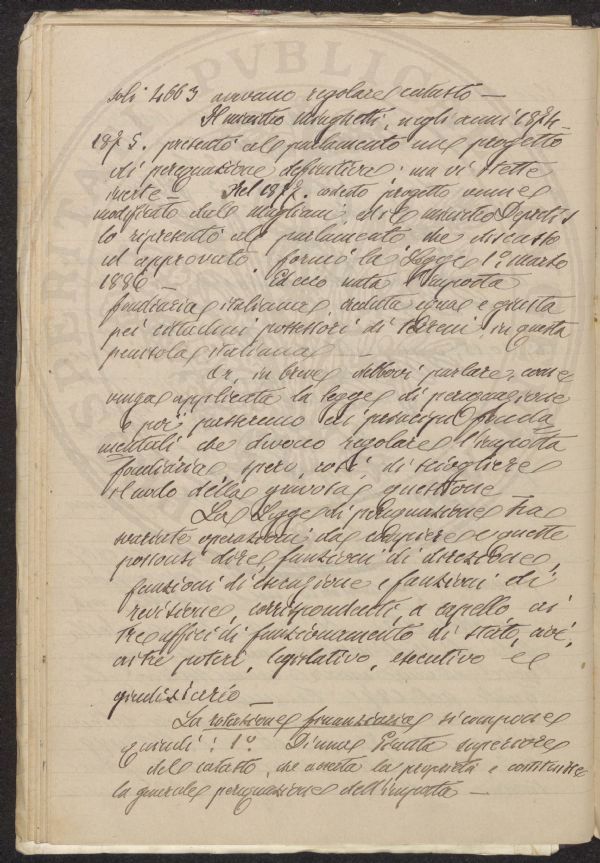 soli 4663 avevano regolare catasto —
Il ministro Minghetti, negli anni 1874-
1875. presentò al parlamento un progetto
di perequazione definitiva; ma vi stette
inerte — Nel 1877. codesto progetto venne
modificato dal Magliani, ed il ministro Depretis
lo ripresentò al parlamento che discusso
ed approvato formò la Legge 1º marzo
1886 — Ed ecco nata l'Imposta
fondiaria italiana, creduta equa e giusta
pei cittadini possessori di terreni, in questa
penisola italiana —
Or, in breve debbovi parlare, come
venga applicata la legge di perequazione
e poi passeremo ai principii fonda
mentali che devono regolare l'imposta
fondiaria, spero, così di sciogliere
il nodo della gravosa questione —
La Legge di perequazione ha
svariate operazioni da compiere e queste
possonsi dire, funzioni di direzione,
funzioni di esecuzione e funzioni di
revisione, corrispondenti, a capello ai
tre uffici di funzionamento di stato, cioè,
ai tre poteri, legislativo, esecutivo e
giudiziario —
La rotazione finanziaria si compone
quindi: 1º Di una Giunta superiore
del catasto, che accerta la proprietà e costituisce
la generale perequazione dell'imposta —
SPERITA PVBLIC